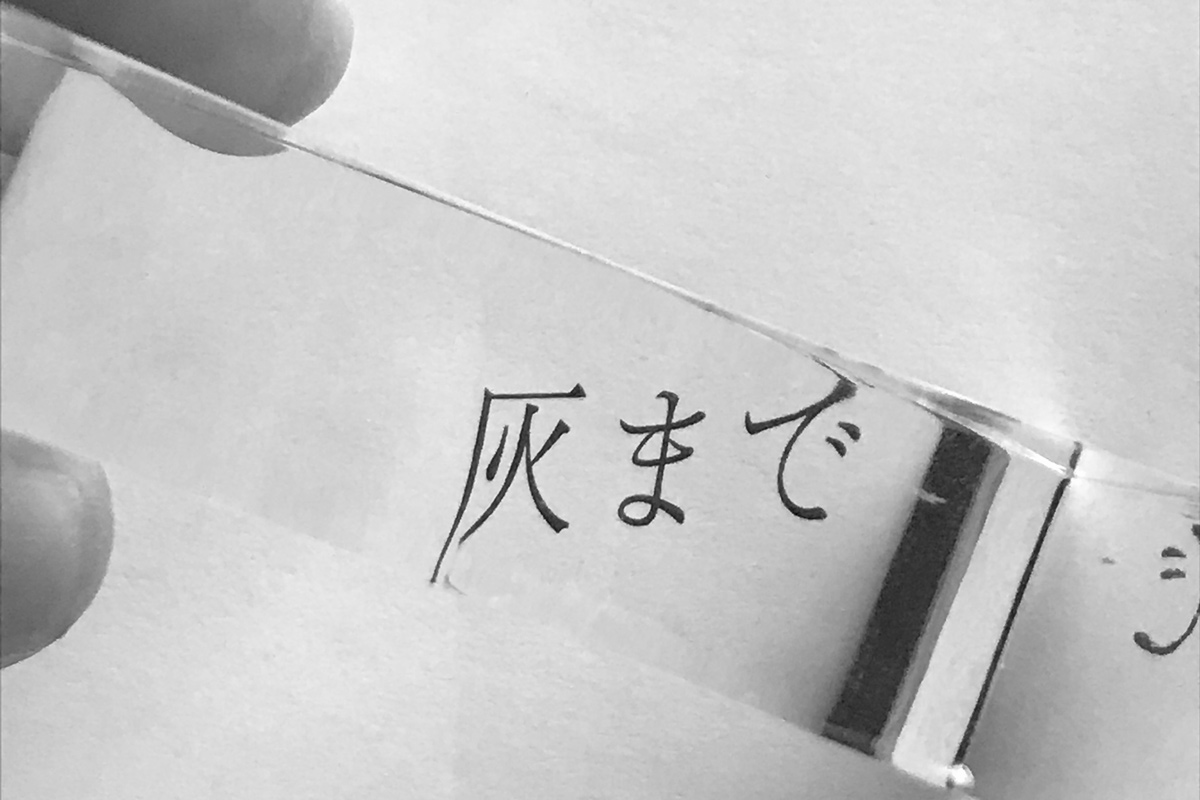 灰まで